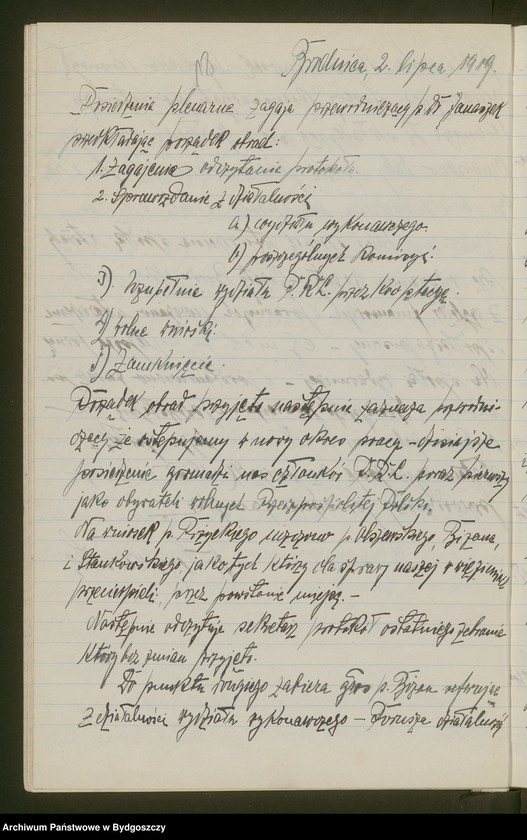 Brodnica, 2. lipca 1919.
Posiedzenie plenarne zagaja przewodniczący p. Dr Janaszek
przedkładając porządek obrad:
1. Zagajenie odczytanie protokołu.
2. Sprawozdanie z działalności
a) wydziału wykonawczego.
b) poszczególnych Komisyj.
3) Uzupełnienie wydziału P.R.L. przez kooptację.
4) wolne wnioski.
5) Zamknięcie.
Porządek obrad przyjęto następnie zaznacza przewodni-
czący że wstępujemy w nowy okres pracy - dzisiejsze
posiedzenie gromadzi nas członków P.R.L. poraz pierwszy
jako obywateli wolnych Rzeczypospolitej Polskiej.
Na wniosek p. uczczono p. Olszewskiego, Bizana,
i Stankowskiego jako tych którzy dla sprawy naszej w więzieniu
przecierpieli przez powstanie miejsc. -
Następnie odczytuje sekretarz protokół ostatniego zebrania
który bez zmian przyjęto.
Do punktu drugiego zabiera głos p. Bizan referując
z działalności wydziału wykonawczego - Porusza działalność
Archiwum Państwowe w Bydgoszczy